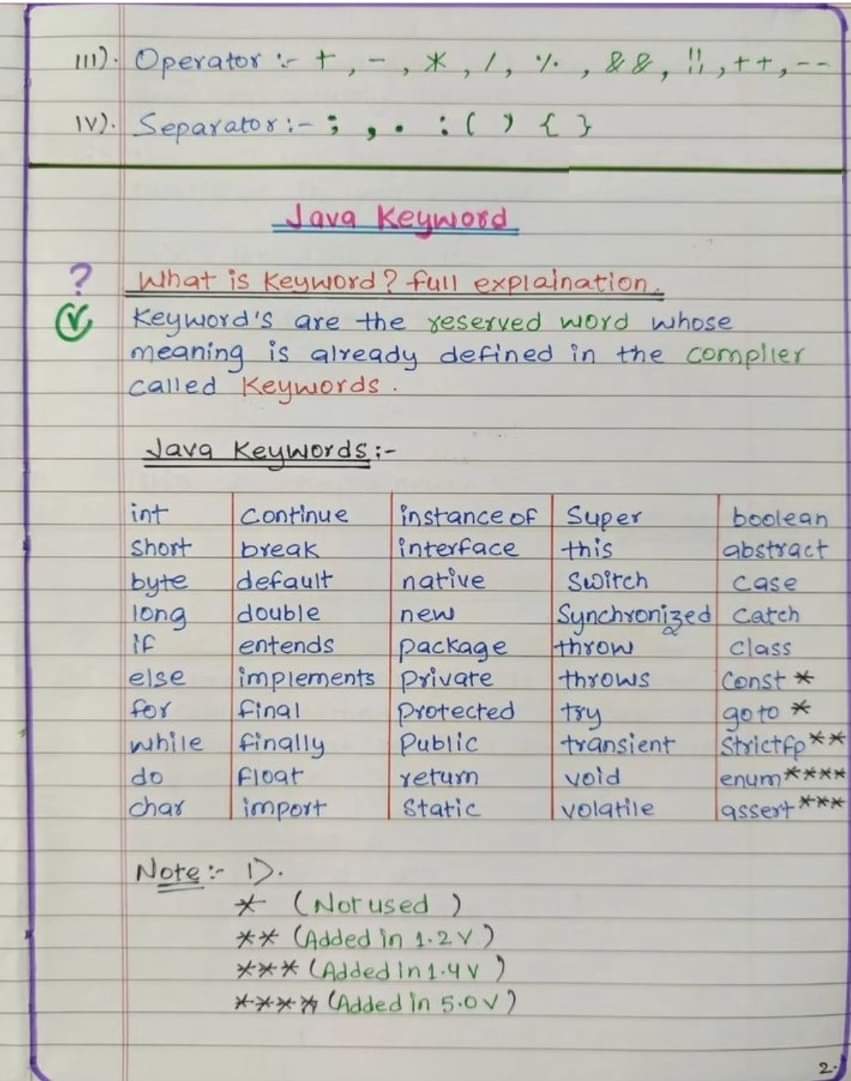 III). Operator :- +, -, *, /, %, &&, !!, ++, --
IV). Separator :- ; , . : ( ) { }
Java Keyword
? What is Keyword? full explaination.
Keyword's are the reserved word whose
meaning is already defined in the complier
called Keywords.
Java Keywords :-
int continue instance of Super boolean
short break interface this abstract
byte default native Switch case
long double new Synchronized catch
if entends package throw class
else implements private throws Const *
for final protected try go to *
while finally Public transient Strictfp **
do float return void enum ****
char import static volatile assert ***
Note :- 1).
* (Not used )
** (Added in 1.2 V )
*** (Added in 1.4 V )
**** (Added in 5.0 V )
2.